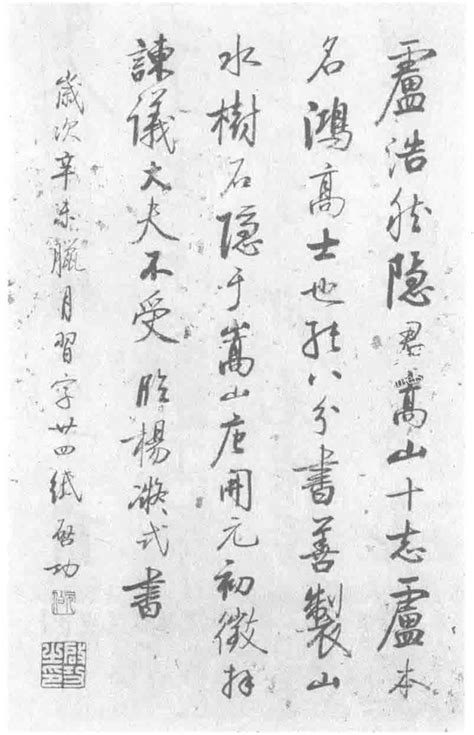 盧浩然隐君嵩山十志盧本
名鴻高士也能八分書善製山
水樹石隐于嵩山唐開元初徵拜
諫議大夫不受 臨楊凝式書
歲次辛未臘月習字卅四紙啟功
啟功之印